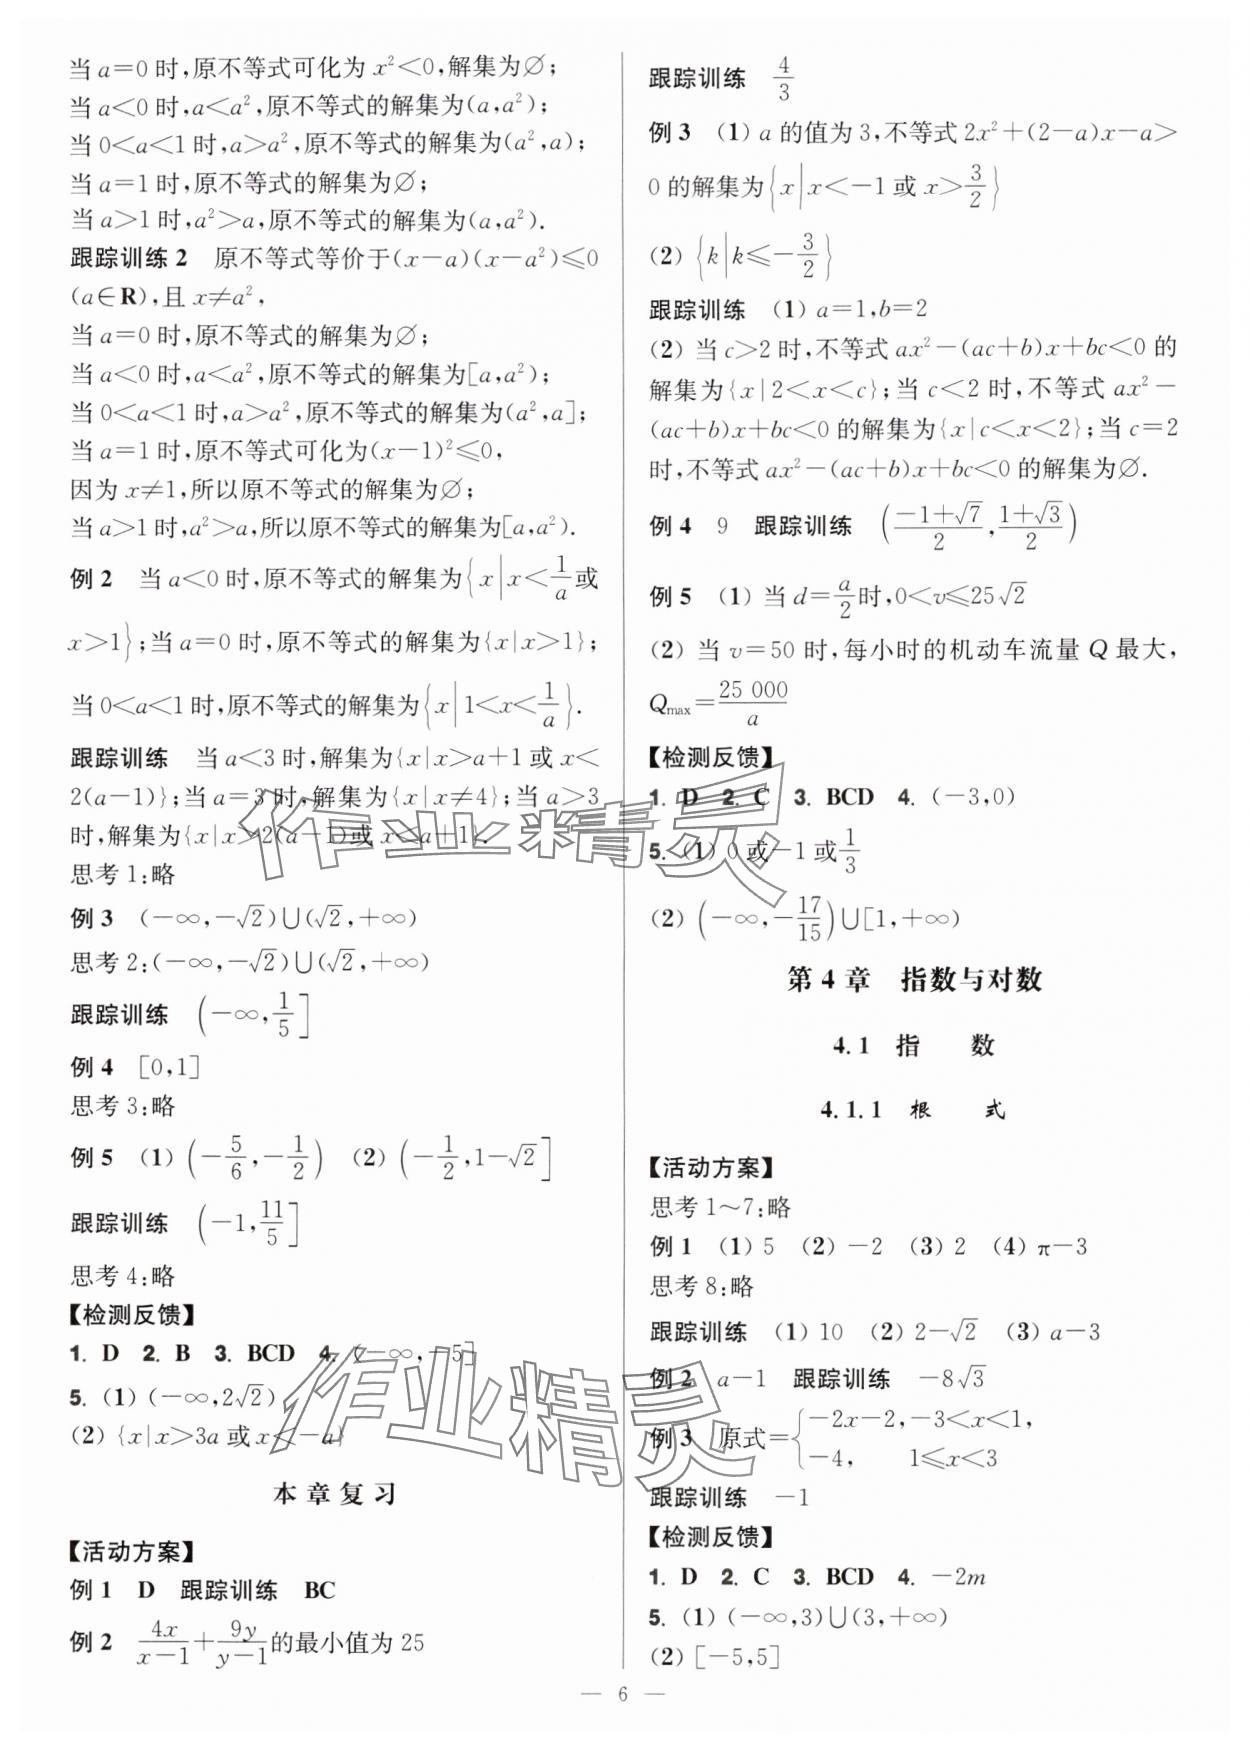 当 a=0 时,原不等式可化为 x²<0,解集为∅;
当 a<0 时,a<a²,原不等式的解集为(a,a²);
当 0<a<1 时,a>a²,原不等式的解集为(a²,a);
当 a=1 时,原不等式的解集为∅;
当 a>1 时,a²>a,原不等式的解集为(a,a²).
跟踪训练 2 原不等式等价于(x-a)(x-a²)≤0
(a∈R),且 x≠a²,
当 a=0 时,原不等式的解集为∅;
当 a<0 时,a<a²,原不等式的解集为[a,a²);
当 0<a<1 时,a>a²,原不等式的解集为(a²,a];
当 a=1 时,原不等式可化为(x-1)²≤0,
因为 x≠1,所以原不等式的解集为∅;
当 a>1 时,a²>a,所以原不等式的解集为[a,a²).
例 2 当 a<0 时,原不等式的解集为{x|x<1/a或
x>1};当 a=0 时,原不等式的解集为{x|x>1};
当 0<a<1 时,原不等式的解集为{x|1<x<1/a}.
跟踪训练 当 a<3 时,解集为{x|x>a+1 或 x<
2(a-1)};当 a=3 时,解集为{x|x≠4};当 a>3
时,解集为{x|x>2(a-1)或 x<a+1}.
思考 1:略
例 3 (-∞,-√2)∪(√2,+∞)
思考 2:(-∞,-√2)∪(√2,+∞)
跟踪训练 (-∞,1/5]
例 4 [0,1]
思考 3:略
例 5 (1) (-5/6,-1/2) (2) (-1/2,1-√2]
跟踪训练 (-1,11/5]
思考 4:略
【检测反馈】
1. D 2. B 3. BCD 4. (-∞,-5]
5. (1) (-∞,2√2)
(2) {x|x>3a 或 x<-a}
本章复习
【活动方案】
例 1 D 跟踪训练 BC
例 2 4x/(x-1)+9y/(y-1)的最小值为 25
跟踪训练 4/3
例 3 (1) a 的值为 3,不等式 2x²+(2-a)x-a>
0 的解集为{x|x<-1 或 x>3/2}
(2) {k|k≤-3/2}
跟踪训练 (1) a=1,b=2
(2) 当 c>2 时,不等式 ax²-(ac+b)x+bc<0 的
解集为{x|2<x<c};当 c<2 时,不等式 ax²-
(ac+b)x+bc<0 的解集为{x|c<x<2};当 c=2
时,不等式 ax²-(ac+b)x+bc<0 的解集为∅.
例 4 9 跟踪训练 ((-1+√7)/2,(1+√3)/2)
例 5 (1) 当 d=a/2时,0<v≤25√2
(2) 当 v=50 时,每小时的机动车流量 Q 最大,
Qmax=25 000/a
【检测反馈】
1. D 2. C 3. BCD 4. (-3,0)
5. (1) 0 或-1 或1/3
(2) (-∞,-17/15)∪[1,+∞)
第 4 章 指数与对数
4.1 指 数
4.1.1 根 式
【活动方案】
思考 1～7:略
例 1 (1) 5 (2) -2 (3) 2 (4) π-3
思考 8:略
跟踪训练 (1) 10 (2) 2-√2 (3) a-3
例 2 a-1 跟踪训练 -8√3
例 3 原式={-2x-2,-3<x<1,
-4, 1≤x<3
跟踪训练 -1
【检测反馈】
1. D 2. C 3. BCD 4. -2m
5. (1) (-∞,3)∪(3,+∞)
(2) [-5,5]
— 6 —
作业精灵
作业精灵